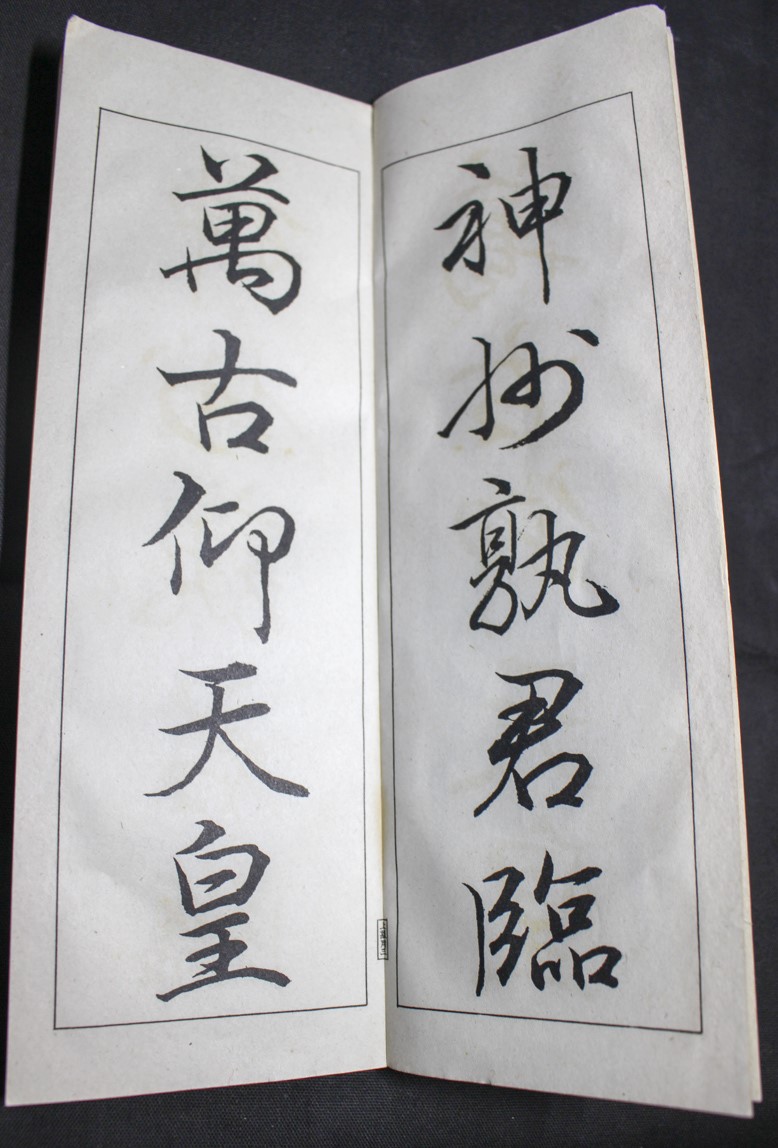 神州孰君臨
萬古仰天皇